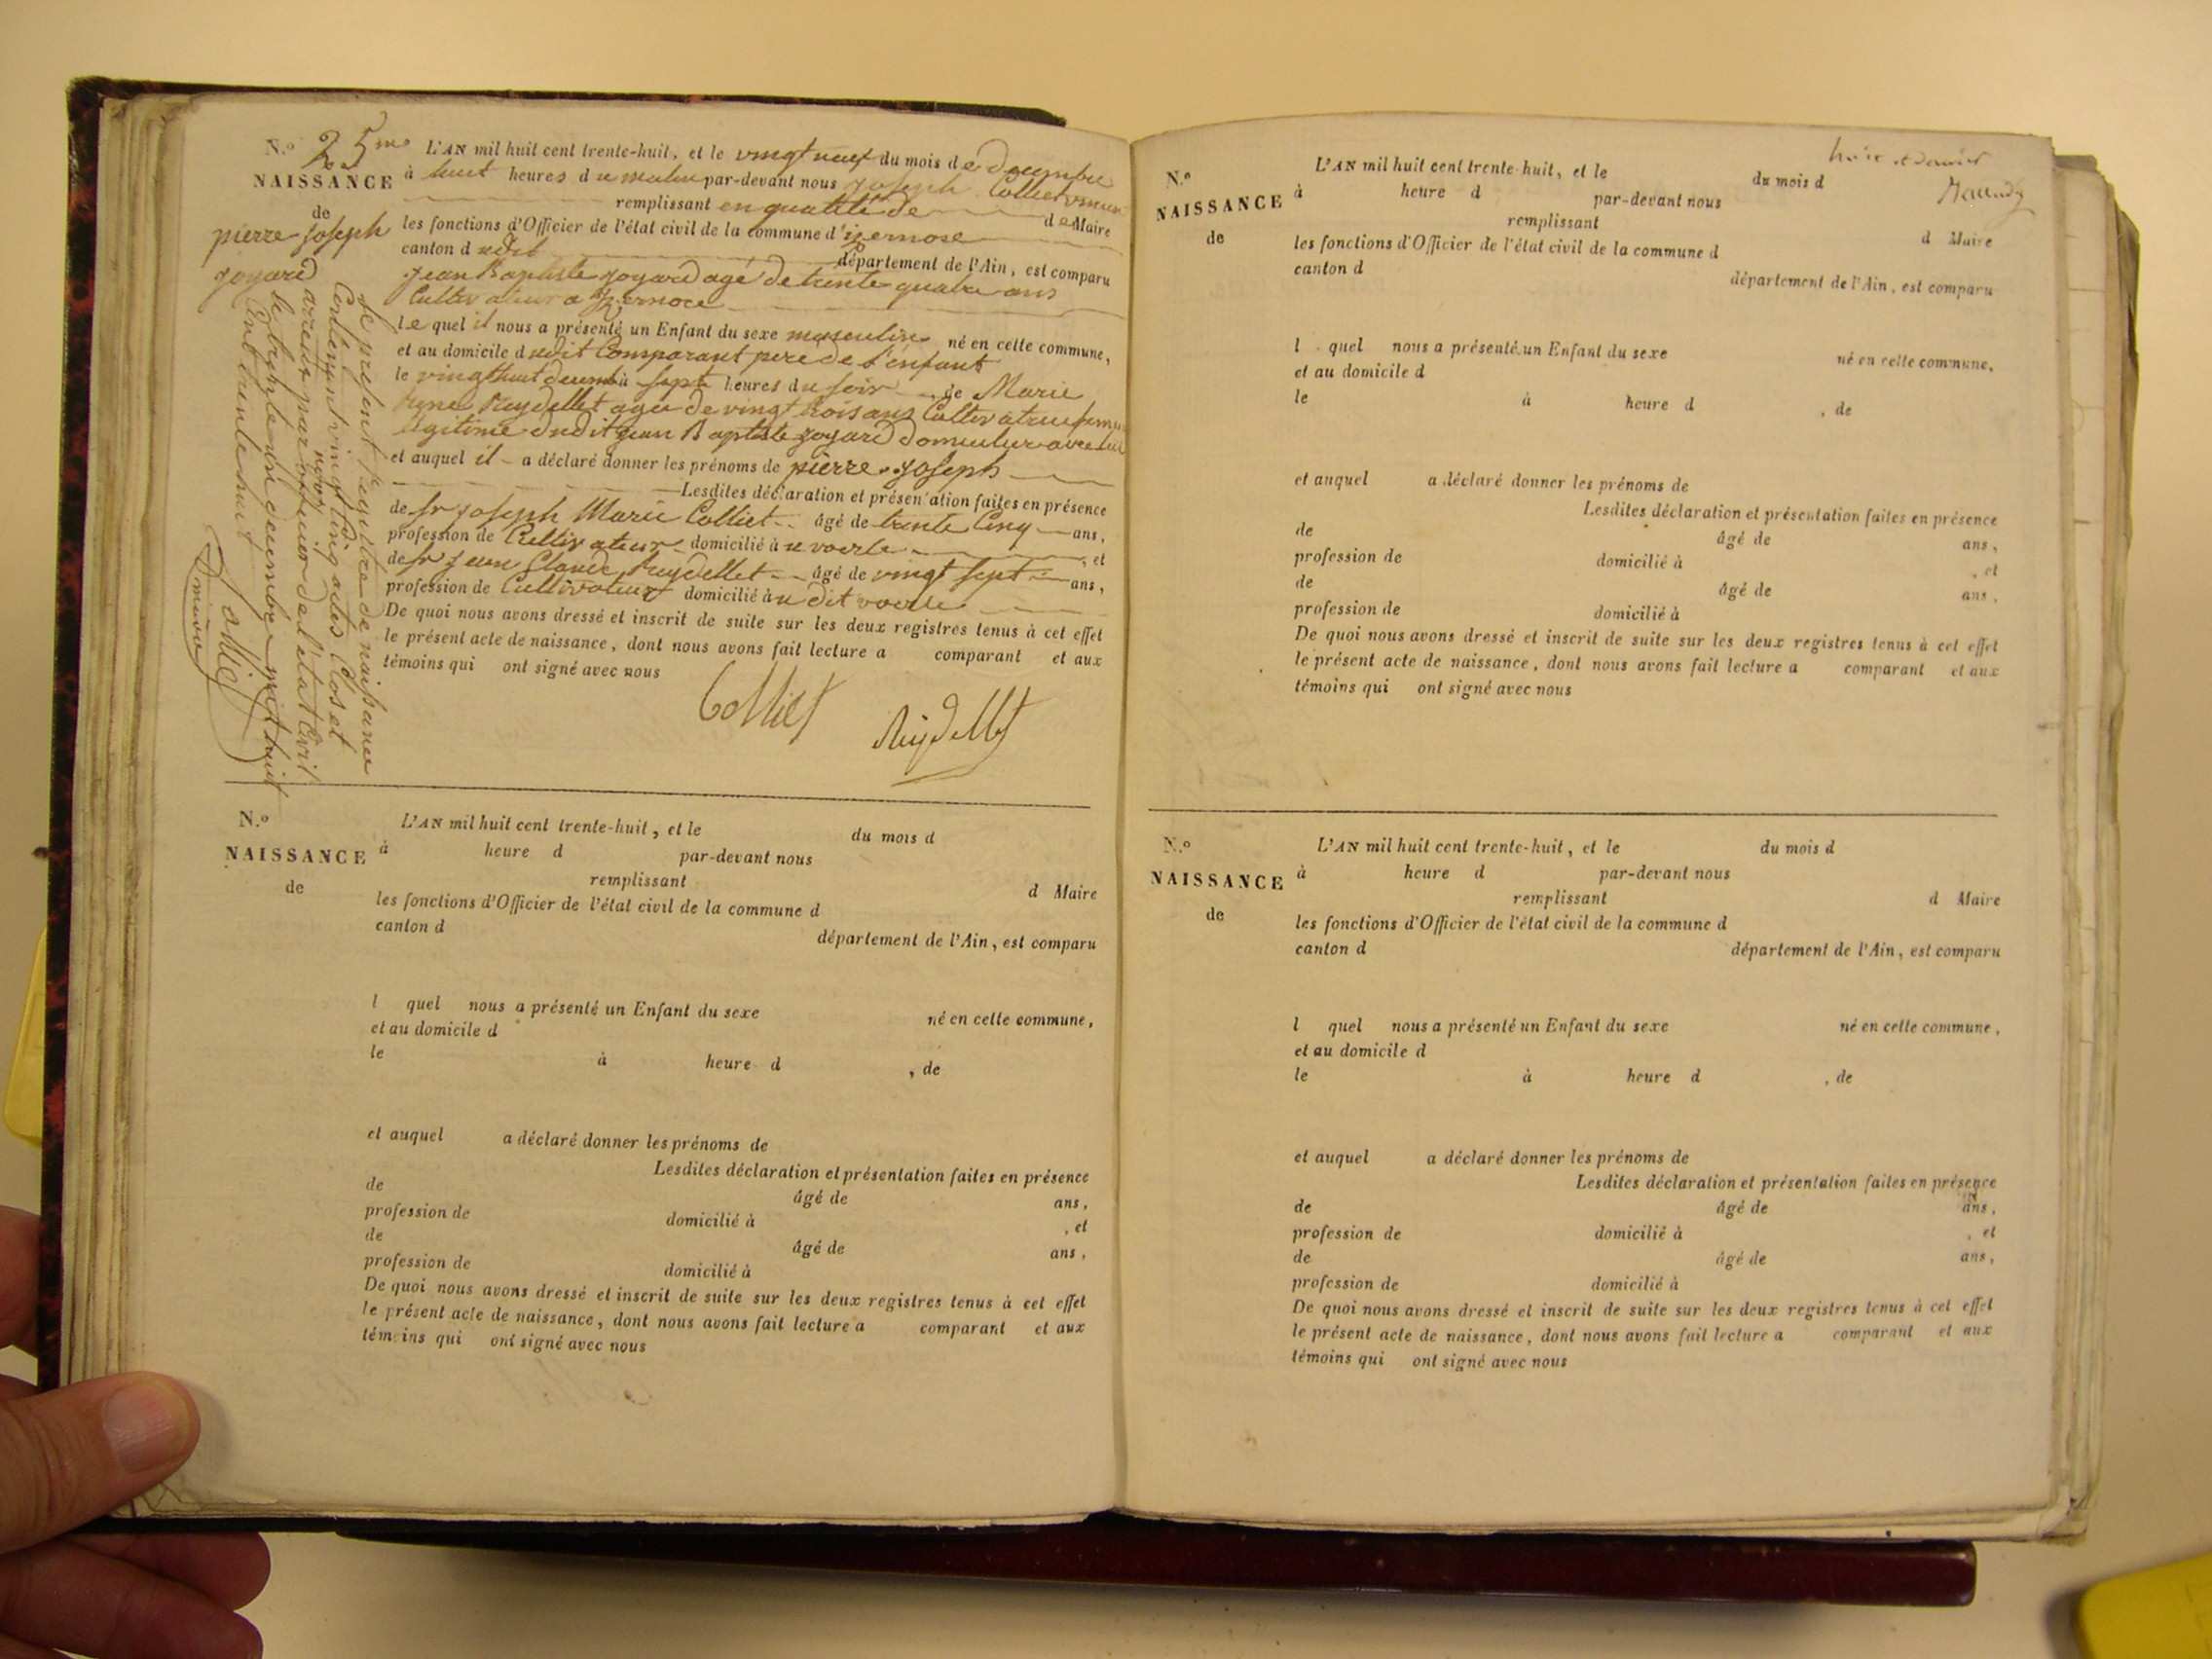 N.o 25me
NAISSANCE
de
pierre joseph
joyard
L'AN mil huit cent trente-huit, et le vingt neuf du mois de Decembre
à huit heures du matin par-devant nous joseph Colliet
remplissant en qualité de de Maire
les fonctions d'Officier de l'état civil de la commune d'izernore
canton dudit département de l'Ain, est comparu
jean Baptiste joyard agé de trente quatre ans
Cultivateur a izernore
le quel il nous a présenté un Enfant du sexe masculin né en cette commune,
et au domicile dudit Comparant pere de l'enfant
le vingt huit decembre à sept heures du soir de Marie
Reydellet agée de vingt trois ans Cultivatrice
legitime dudit jean Baptiste joyard domiciliée avec lui
et auquel il a déclaré donner les prénoms de pierre joseph
Lesdites déclaration et présentation faites en présence
de sr joseph Marie Colliet âgé de trente Cinq ans,
profession de Cultivateur domicilié à , et
de sr jean Claude Reydellet âgé de vingt sept ans,
profession de Cultivateur domicilié au dit
De quoi nous avons dressé et inscrit de suite sur les deux registres tenus à cet effet
le présent acte de naissance, dont nous avons fait lecture a comparant et aux
témoins qui ont signé avec nous
Colliet
Reydellet
Le présent registre de naissance
Contenant vingt cinq actes Clos et
arreté par nous officier de l'etat Civil
le trente un decembre mil huit
Cent trente huit
Colliet
N.o
NAISSANCE
de
L'AN mil huit cent trente-huit, et le du mois d
à heure d par-devant nous
remplissant d Maire
les fonctions d'Officier de l'état civil de la commune d
canton d département de l'Ain, est comparu
l quel nous a présenté un Enfant du sexe né en cette commune,
et au domicile d
le à heure d , de
et auquel a déclaré donner les prénoms de
Lesdites déclaration et présentation faites en présence
de âgé de ans,
profession de domicilié à , et
de âgé de ans,
profession de domicilié à
De quoi nous avons dressé et inscrit de suite sur les deux registres tenus à cet effet
le présent acte de naissance, dont nous avons fait lecture a comparant et aux
témoins qui ont signé avec nous
N.o
NAISSANCE
de
L'AN mil huit cent trente-huit, et le du mois d
à heure d par-devant nous
remplissant d Maire
les fonctions d'Officier de l'état civil de la commune d
canton d département de l'Ain, est comparu
l quel nous a présenté un Enfant du sexe né en cette commune,
et au domicile d
le à heure d , de
et auquel a déclaré donner les prénoms de
Lesdites déclaration et présentation faites en présence
de âgé de ans,
profession de domicilié à , et
de âgé de ans,
profession de domicilié à
De quoi nous avons dressé et inscrit de suite sur les deux registres tenus à cet effet
le présent acte de naissance, dont nous avons fait lecture a comparant et aux
témoins qui ont signé avec nous
N.o
NAISSANCE
de
L'AN mil huit cent trente-huit, et le du mois d
à heure d par-devant nous
remplissant d Maire
les fonctions d'Officier de l'état civil de la commune d
canton d département de l'Ain, est comparu
l quel nous a présenté un Enfant du sexe né en cette commune,
et au domicile d
le à heure d , de
et auquel a déclaré donner les prénoms de
Lesdites déclaration et présentation faites en présence
de âgé de ans,
profession de domicilié à , et
de âgé de ans,
profession de domicilié à
De quoi nous avons dressé et inscrit de suite sur les deux registres tenus à cet effet
le présent acte de naissance, dont nous avons fait lecture a comparant et aux
témoins qui ont signé avec nous